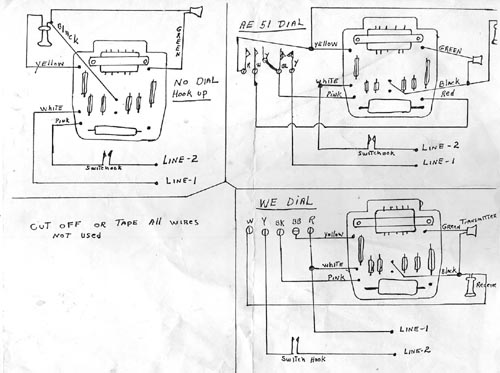 Black
GREEN
yellow
NO DIAL
Hook up
WHITE
Pink
SwitcHook
LINE-2
LINE-1
CUT OFF OR TAPE All WIRES
NOT USED
AE 51 DIAL
yellow
GREEN
White
Black
Pink
Red
LINE-2
Switchook
LINE-1
WE DIAL
W Y BK BB R
Green
Transmitter
yellow
White
Black
Pink
Receive
LINE-1
LINE-2
Switch Hook